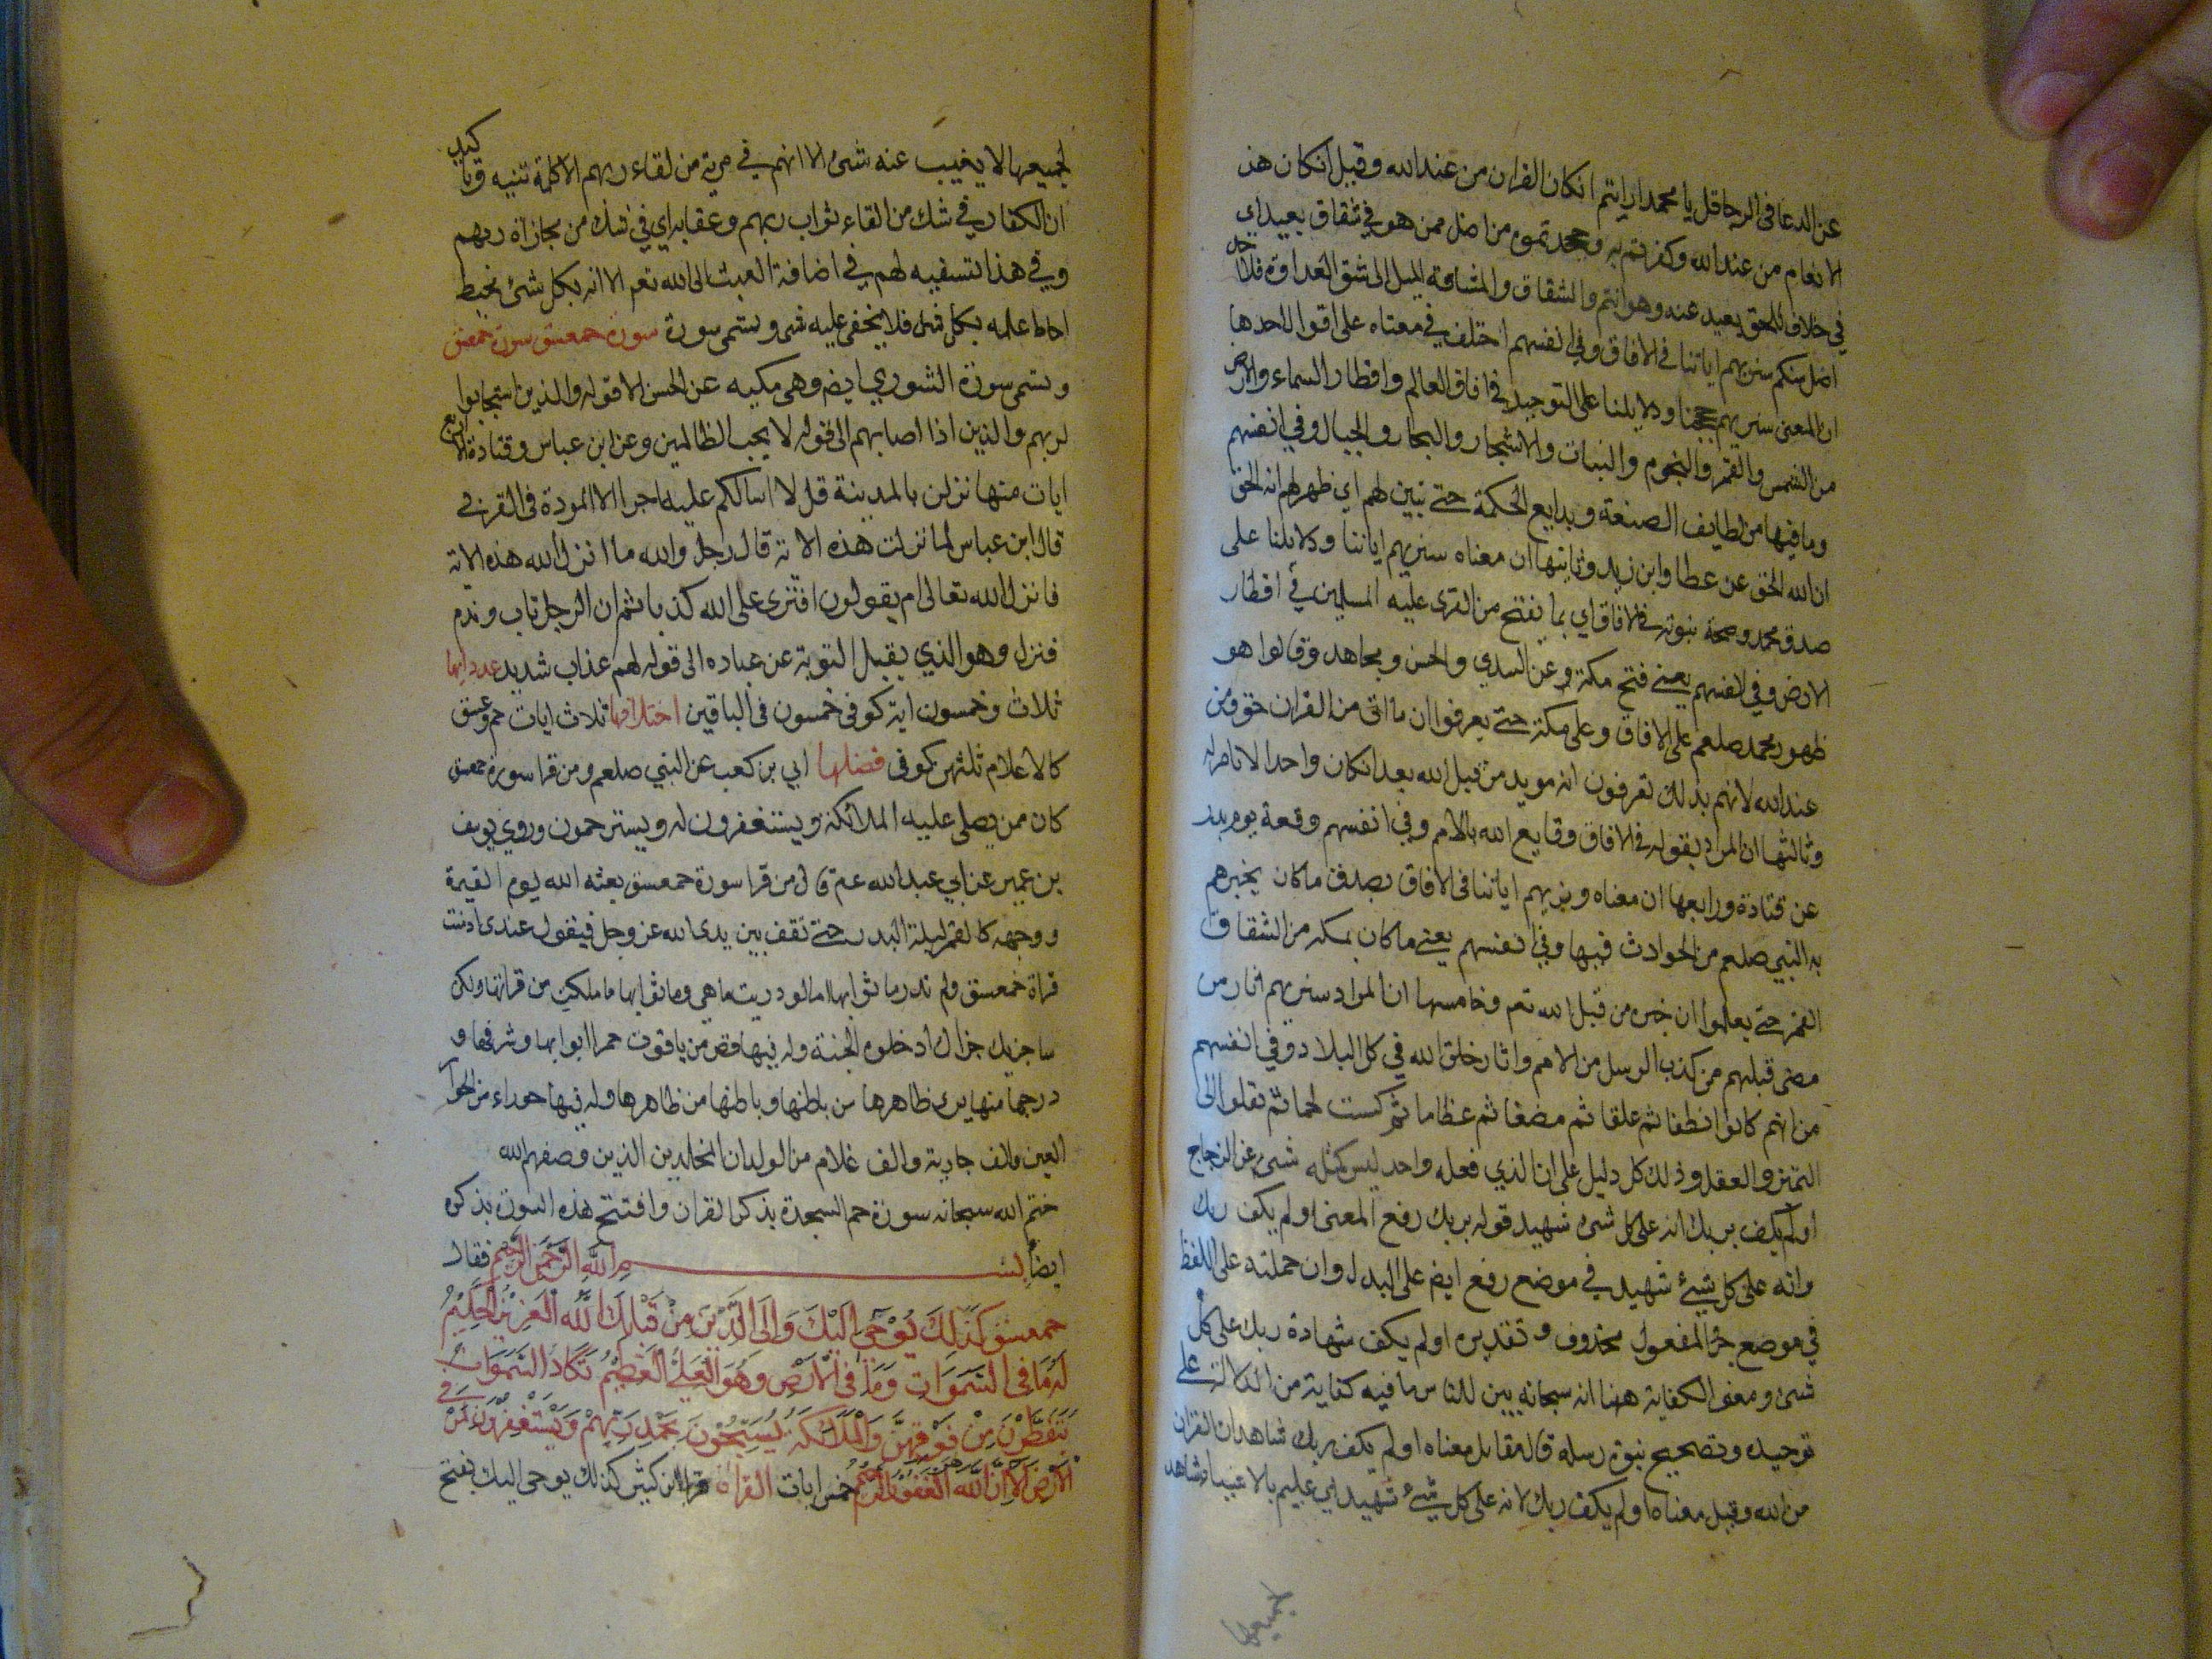 عن الدعا في الرجا قل يا محمد ارايتم ان كان القران من عند الله وقيل ان كان هذ
الانعام من عند الله وكفرتم به وجحدتموه من اضل ممن هو في شقاق بعيد اي
في خلاف للحق بعيد عنه وهو انتم والشقاق والمشاقة الميل الى شق العداوة فلا احد
اضل منكم سنريهم اياتنا في الافاق وفي انفسهم اختلف في معناه على اقوال احدها
ان المعنى سنريهم حججنا ودلايلنا على التوحيد في افاق العالم واقطار السماء والارض
من الشمس والقمر والنجوم والنبات والاشجار والبحار والجبال وفي انفسهم
وما فيها من لطايف الصنعة وبدايع الحكمة حتى تبين لهم اي ظهر لهم انه الحق
ان الله الحق عن عطا وابن زيد وثانيها ان معناه سنريهم اياتنا ودلايلنا على
صدق محمد وصحة نبوته في الافاق اي بما يفتح من القرى عليه المسلمين في اقطار
الارض وفي انفسهم يعني فتح مكة وعن السدي والحسن ومجاهد وقالوا هو
ظهور محمد صلعم على الافاق وعلى مكة حتى يعرفوا ان ما اتى من القران حق ومن
عند الله لانهم بذلك تعرفون انه مويد من قبل الله بعد ان كان واحدا لا ناصر له
وثالثها ان المراد بقوله في الافاق وقايع الله بالامم وفي انفسهم وقعة يوم بدر
عن قتادة ورابعها ان معناه ونريهم اياتنا في الافاق بصدق ما كان يخبرهم
به النبي صلعم من الحوادث فيها وفي انفسهم يعني ما كان بمكه من انشقاق
القمر حتى يعلموا ان خبره من قبل الله تعم وخامسها ان المراد سنريهم اثار من
مضى قبلهم من كذب الرسل من الامم واثار خلق الله في كل البلاد وفي انفسهم
من انهم كانوا نطفا ثم علقا ثم مضغا ثم عظاما ثم كست لحما ثم نقلوا الى
التميز والعقل وذلك كل دليل على ان الذي فعله واحد ليس كمثله شيء عن الزجاج
اولم يكف بربك انه على كل شئ شهيد قوله بربك رفع المعنى اولم يكف ربك
وانه على كل شيئ شهيد في موضع رفع ايض على البدل وان حملته على اللفظ
في موضع جر المفعول محذوف وتقديره اولم يكف شهادة ربك على كل
شئ ومعنى الكفاية ههنا انه سبحانه يبين للناس ما فيه كفاية من الدلالة على
توحيده وتصحيح نبوة رسله قال مقاتل معناه اولم يكف بربك شاهد ان القران
من الله وقيل معناه اولم يكف ربك لانه على كل شيئ شهيد اي عليم بالاشيا مشاهد
جميعها
لجميعها لا يغيب عنه شئ الا انهم في مرية من لقاء ربهم الا كلمة تنبيه وتاكيد
ان الكفار في شك من القاء ثواب ربهم وعقابه اي في شك من مجازاة ربهم
وفي هذا تسفيه لهم في اضافة العبث الى الله تعم الا انه بكل شئ محيط
احاط علمه بكل شئ فلا يخفى عليه شئ وتسمى سورة سورة حمعسق سورة حمعسق
وتسمى سورة الشوري ايض وهي مكيه عن الحسن الا قوله والذين استجابوا
لربهم والذين اذا اصابهم الى قوله لا يحب الظالمين وعن ابن عباس وقتادة الا اربع
ايات منها نزلن بالمدينة قل لا اسالكم عليه اجرا الا المودة في القربى
قال ابن عباس لما نزلت هذه الاية قال رجل والله ما انزل الله هذه الاية
فانزل الله تعالى ام يقولون افترى على الله كذبا ثم ان الرجل تاب وندم
فنزل وهو الذي يقبل التوبة عن عباده الى قوله لهم عذاب شديد عدد ايها
ثلاث وخمسون اية كوفى خمسون في الباقين اختلافها ثلاث ايات حم وعسق
كالاعلام ثلثهن كوفى فضلها ابي بن كعب عن النبي صلعم ومن قرا سورة حمعسق
كان ممن يصلي عليه الملائكة ويستغفرون له ويسترحمون وروي يوسف
بن عميره عن ابي عبد الله عم قال من قرا سورة حمعسق بعثه الله يوم القيمة
ووجهه كالقمر ليلة البدر حتى تقف بين يدى الله عز وجل فيقول عندى ادمنت
قراة حمعسق ولم تدر ما ثوابها اما لو دريت ما هي وما ثوابها ما مللت من قراتها ولكن
ساجزيك جزاك ادخلوه الجنة وله فيها قصر من ياقوت حمرا ابوابها وشرفها و
درجها منها يرى ظاهرها من باطنها وباطنها من ظاهرها وله فيها حوراء من الحور
العين والف جارية والف غلام من الولدان المخلدين الذين وصفهم الله
ختم الله سبحانه سورة حم السجدة بذكر القران وافتتح هذه السورة بذكره
ايضا بسم الله الرحمن الرحيم فقال
حمعسق كَذَلِكَ يُوْحَى اِلَيْكَ وَاِلَى الَّذِيْنَ مِنْ قَبْلِكَ اللّٰه الْعَزِيْزُ الْحَكِيْمُ
لَهُ مَا فِى السَّمَوَاتِ وَمَا فِى الْاَرْضِ وَهُوَ الْعَلِىُّ الْعَظِيْمُ تَكَادُ السَّمَوَاتُ
يَتَفَطَّرْنَ مِنْ فَوْقِهِنَّ وَالْمَلَائِكَةُ يُسَبِّحُوْنَ بِحَمْدِ رَبِّهِمْ وَيَسْتَغْفِرُوْنَ لِمَنْ فِى
الْاَرْضِ اَلَا اِنَّ اللّٰهَ هُوَ الْغَفُوْرُ الرَّحِيْمُ خمس ايات القراة قرا ابن كثير كذلك يوحى اليك بفتح